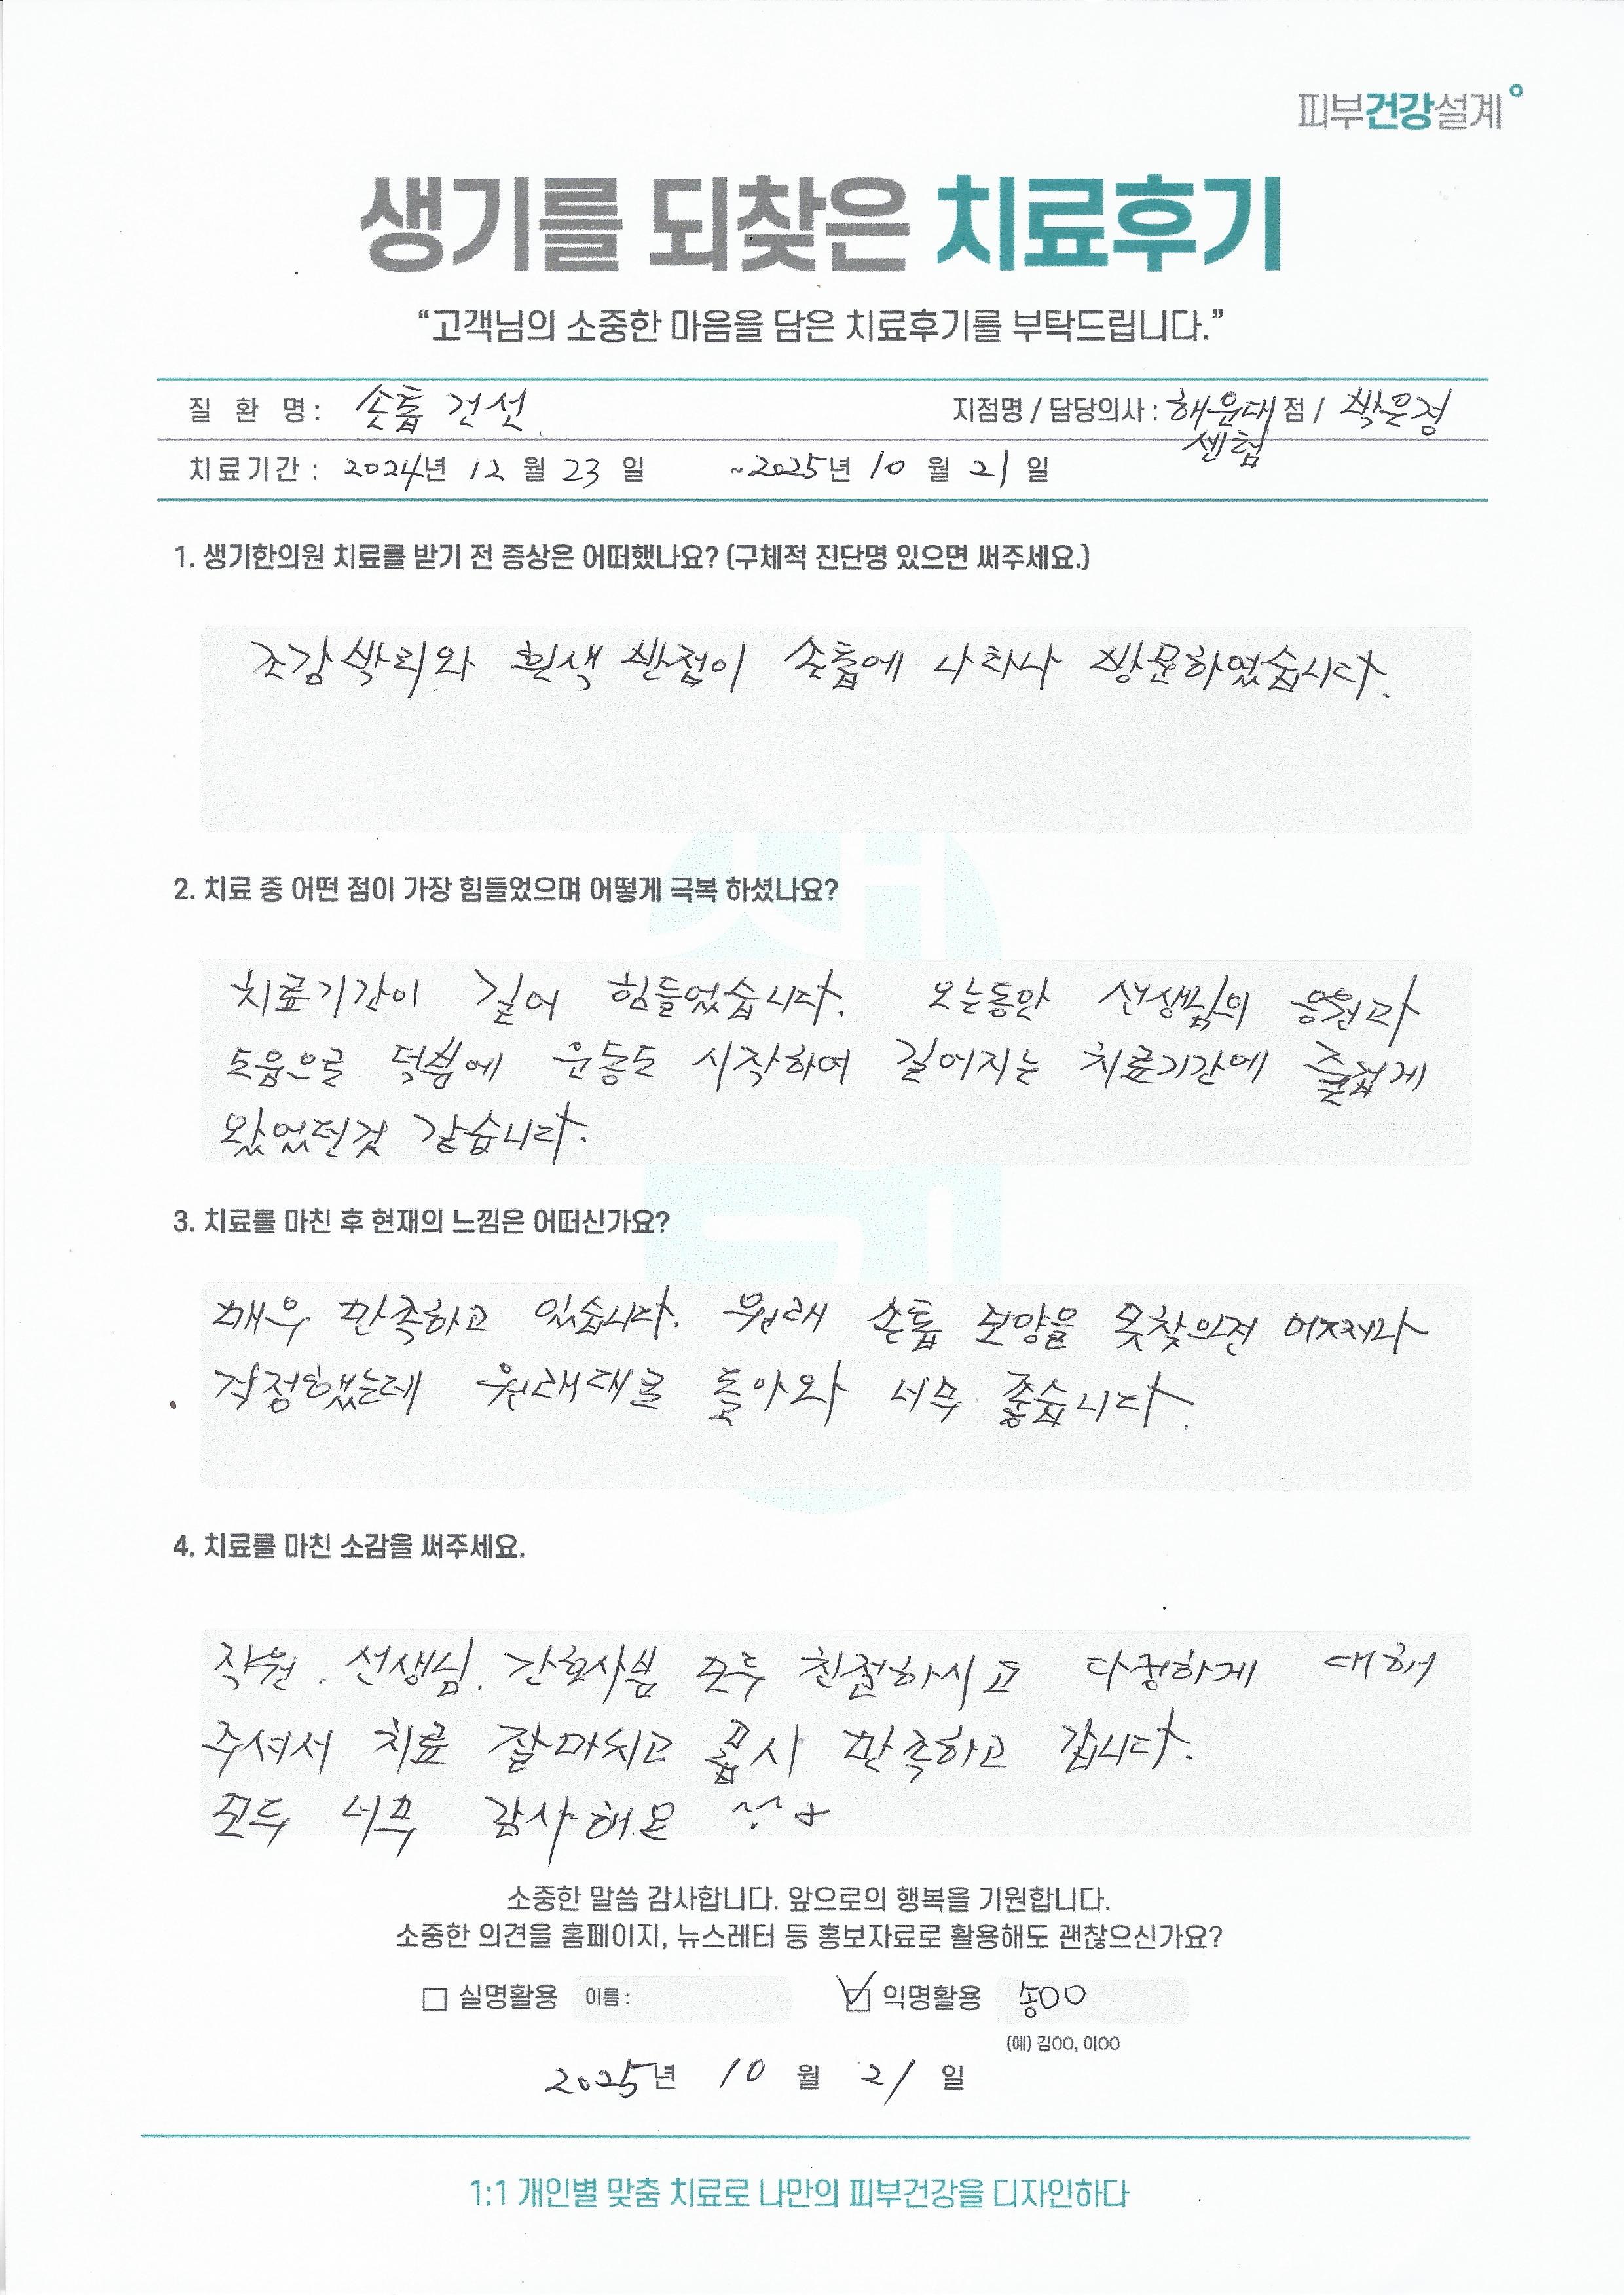 피부건강설계
생기를 되찾은 치료후기
“고객님의 소중한 마음을 담은 치료후기를 부탁드립니다.”
질 환 명 : 손톱 건선 지점명 / 담당의사 : 해운대 점 / 박은경
센텀
치료기간 : 2024년 12 월 23 일 ~2025년 10 월 21 일
1. 생기한의원 치료를 받기 전 증상은 어떠했나요? (구체적 진단명 있으면 써주세요.)
조갑박리와 흰색 반점이 손톱에 나타나 방문하였습니다.
2. 치료 중 어떤 점이 가장 힘들었으며 어떻게 극복 하셨나요?
치료기간이 길어 힘들었습니다. 오는동안 선생님의 응원과
도움으로 덕분에 운동도 시작하여 길어지는 치료기간에 즐겁게
왔었던것 같습니다.
3. 치료를 마친 후 현재의 느낌은 어떠신가요?
매우 만족하고 있습니다. 원래 손톱 모양을 못찾으면 어쩌나
걱정했는데 원래대로 돌아와 너무 좋습니다.
4. 치료를 마친 소감을 써주세요.
직원. 선생님. 간호사분 모두 친절하시고 다정하게 대해
주셔서 치료 잘마치고 몹시 만족하고 갑니다.
모두 너무 감사해요 ^^+
소중한 말씀 감사합니다. 앞으로의 행복을 기원합니다.
소중한 의견을 홈페이지, 뉴스레터 등 홍보자료로 활용해도 괜찮으신가요?
실명활용 이름 : 익명활용 송OO
(예) 김OO, 이OO
2025년 10 월 21 일
1:1 개인별 맞춤 치료로 나만의 피부건강을 디자인하다